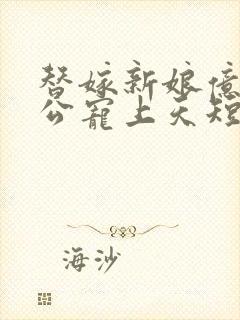 替嫁新娘亿
公宠上天短
海沙